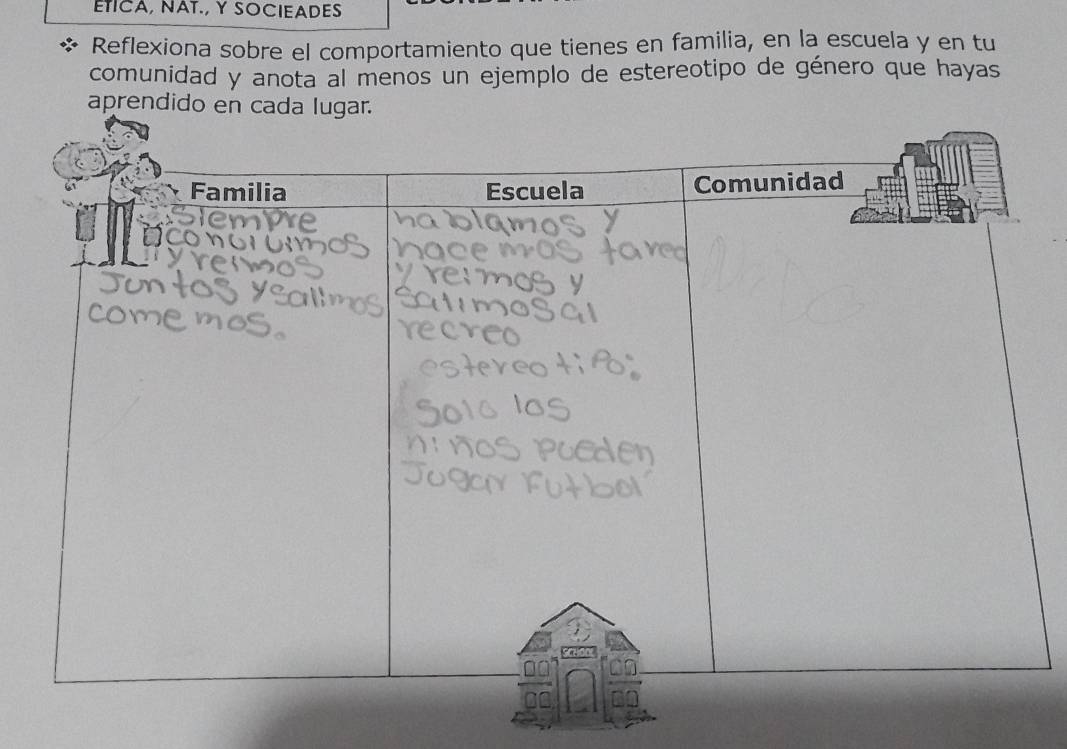 ÉTICA, NAT., Y SOCIEADES
❖ Reflexiona sobre el comportamiento que tienes en familia, en la escuela y en tu
comunidad y anota al menos un ejemplo de estereotipo de género que hayas
aprendido en cada lugar.
Familia
siempre
convivimos
y reimos
Juntos y salimos
comemos.
Escuela
hablamos y
hacemos tarea
y reimos y
salimos al
recreo
estereotipo:
Solo los
niños pueden
Jugar Futbol
SCHOOL
Comunidad